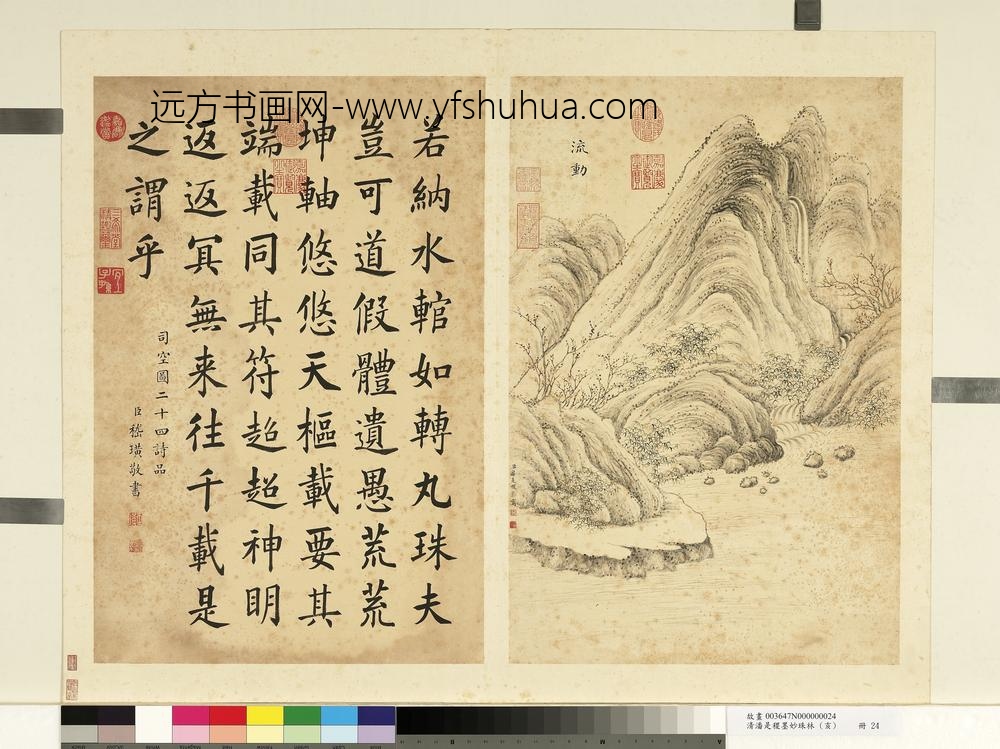 远方书画网-www.yfshuhua.com
流動
若納水輨如轉丸珠夫
豈可道假體遺愚荒荒
坤軸悠悠天樞載要其
端載同其符超超神明
返返冥無来往千載是
之謂乎
司空圖二十四詩品
臣嵇璜敬書
故畫 003647N000000024
清潘是稷墨妙珠林（亥） 冊 24